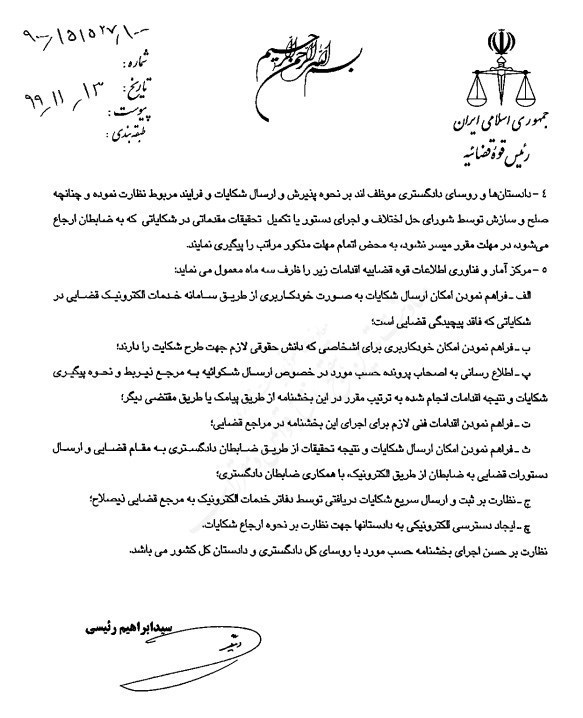 ۹۰۰۰/۱۵۱۵۲۷/۱۰۰
شماره :
تاریخ : ۹۹/۱۱/۱۳
پیوست :
طبقه بندی :
بسم الله الرحمن الرحیم
جمهوری اسلامی ایران
رئیس قوهٔ قضائیه
٤- دادستان‌ها و روسای دادگستری موظف اند بر نحوه پذیرش و ارسال شکایات و فرایند مربوط نظارت نموده و چنانچه
صلح و سازش توسط شورای حل اختلاف و اجرای دستور یا تکمیل تحقیقات مقدماتی در شکایاتی که به ضابطان ارجاع
می‌شود، در مهلت مقرر میسر نشود، به محض اتمام مهلت مذکور مراتب را پیگیری نمایند.
٥- مرکز آمار و فناوری اطلاعات قوه قضاییه اقدامات زیر را ظرف سه ماه معمول می نماید:
الف ـ فراهم نمودن امکان ارسال شکایات به صورت خودکاربری از طریق سامانه خدمات الکترونیک قضایی در
شکایاتی که فاقد پیچیدگی قضایی است؛
ب ـ فراهم نمودن امکان خودکاربری برای اشخاصی که دانش حقوقی لازم جهت طرح شکایت را دارند؛
پ ـ اطلاع رسانی به اصحاب پرونده حسب مورد در خصوص ارسال شکوائیه به مرجع ذیربط و نحوه پیگیری
شکایات و نتیجه اقدامات انجام شده به ترتیب مقرر در این بخشنامه از طریق پیامک یا طریق مقتضی دیگر؛
ت ـ فراهم نمودن اقدامات فنی لازم برای اجرای این بخشنامه در مراجع قضایی؛
ث ـ فراهم نمودن امکان ارسال شکایات و نتیجه تحقیقات از طریق ضابطان دادگستری به مقام قضایی و ارسال
دستورات قضایی به ضابطان از طریق الکترونیک، با همکاری ضابطان دادگستری؛
ج ـ نظارت بر ثبت و ارسال سریع شکایات دریافتی توسط دفاتر خدمات الکترونیک به مرجع قضایی ذیصلاح؛
چ ـ ایجاد دسترسی الکترونیکی به دادستانها جهت نظارت بر نحوه ارجاع شکایات.
نظارت بر حسن اجرای بخشنامه حسب مورد با روسای کل دادگستری و دادستان کل کشور می باشد.
سیدابراهیم رئیسی